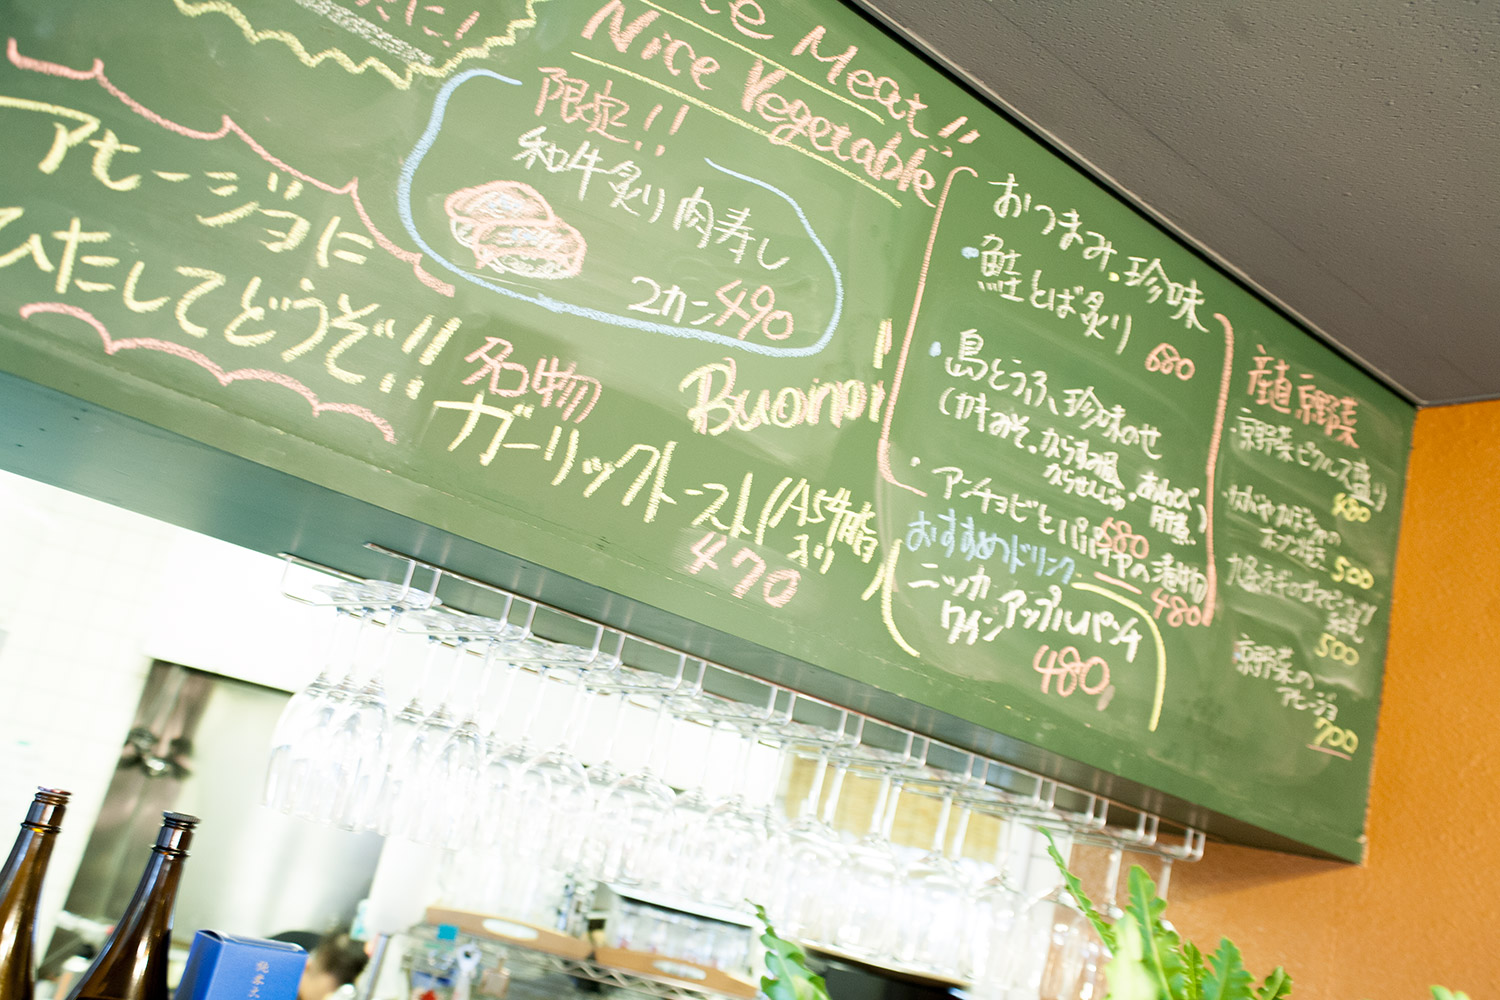 たに!
アヒージョに
ひたしてどうぞ!!
Meat!!
Nice Vegetable
限定!!
和牛炙り肉寿し
2カン490
名物
Buono!
ガーリックトースト(A5牛脂
入り)
470
おつまみ.珍味
・鮭とば炙り
680
・島とうふ、珍味のせ
(カキみそ、からすみ風
からせんじゅ・あわび
肝煮)
680
・アンチョビとパパイヤの漬物
480
おすすめドリンク
ニッカ アップルパンチ
ワイン
480
産直 京野菜
・京野菜ピクルス盛り
480
オーブン焼き
500
500
京野菜の
アヒージョ
700